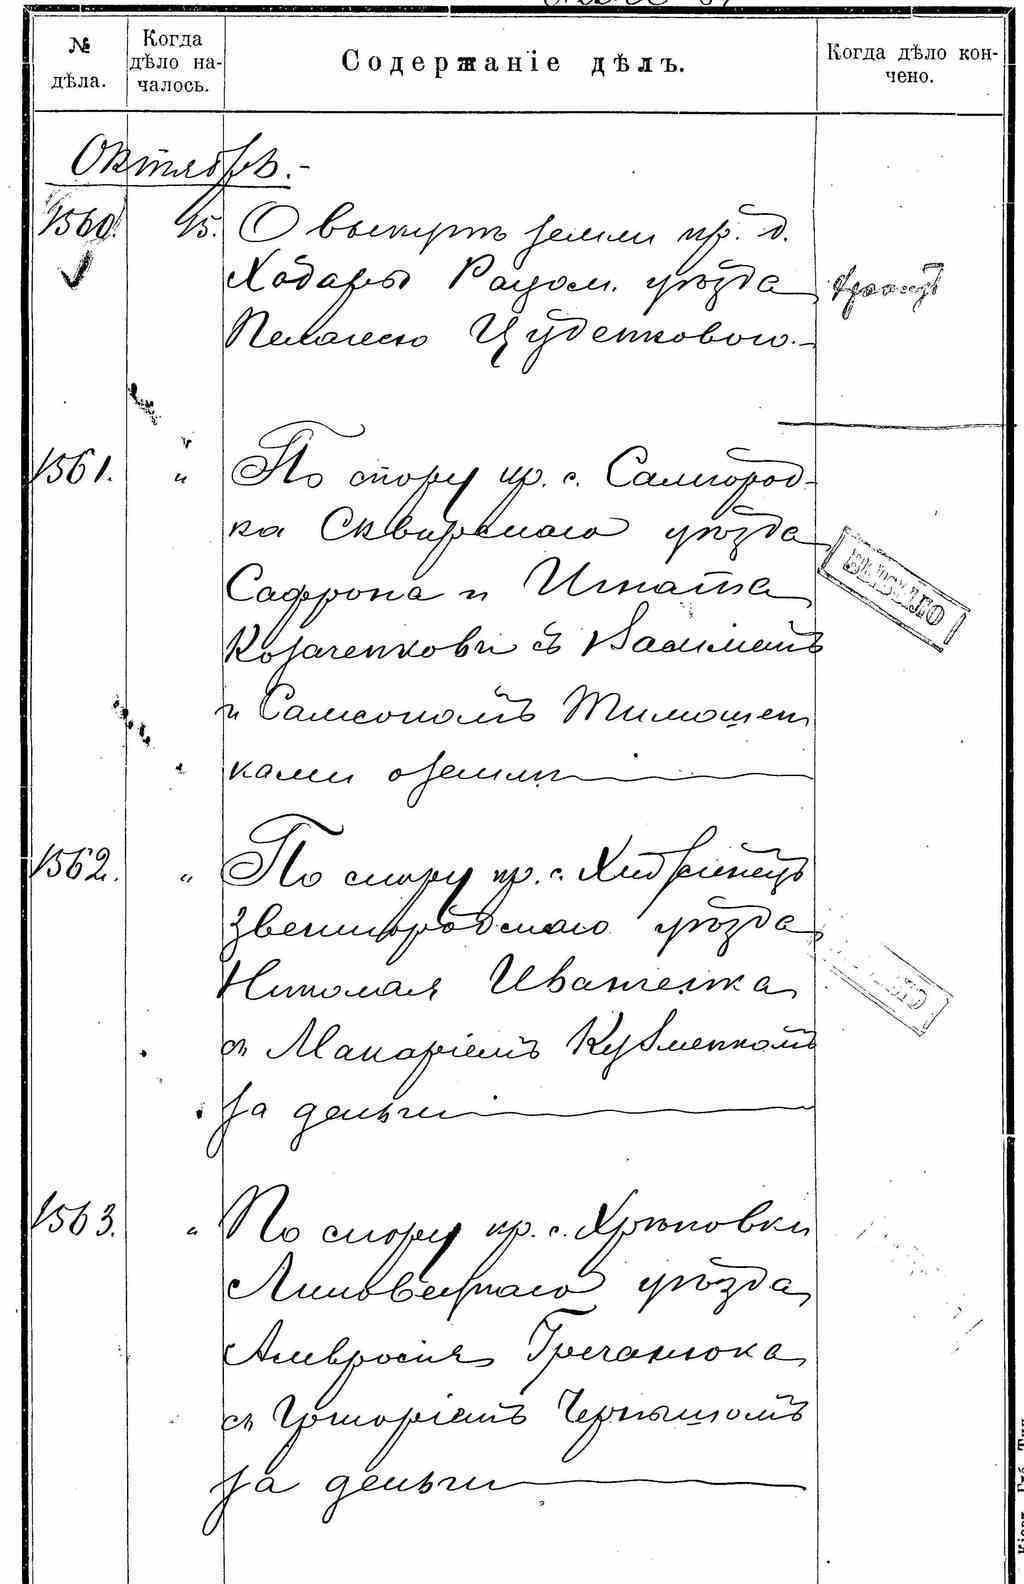 № дѣла.
Когда дѣло началось.
Содержаніе дѣлъ.
Когда дѣло кончено.
Октябрь.-
1560. 15. О выкупѣ земли кр. д.
Ходары Радом. уѣзда
Пелагею Цуденкового.-
1561. " По спору кр. с. Самгород-
ка Сквирскаго уѣзда
Сафрона и Игната
Козаченкови съ
и Самсономъ Тимошен
ками о земли
1562. " По спору кр. с.
Звенигородскаго уѣзда
Николая Иваненка
съ Макаріемъ Кузменкомъ
за деньги
1563. " По спору кр. с. Хрѣновки
Липовецкаго уѣзда
Амвросія Гречанюка
съ Григоріемъ Чернышомъ
за деньги